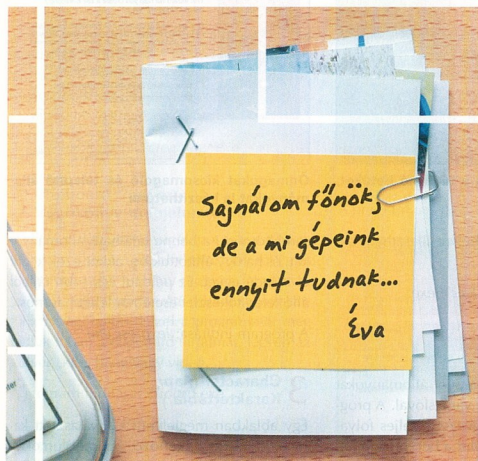 Sajnálom főnök,
de a mi gépeink
ennyit tudnak...
Éva